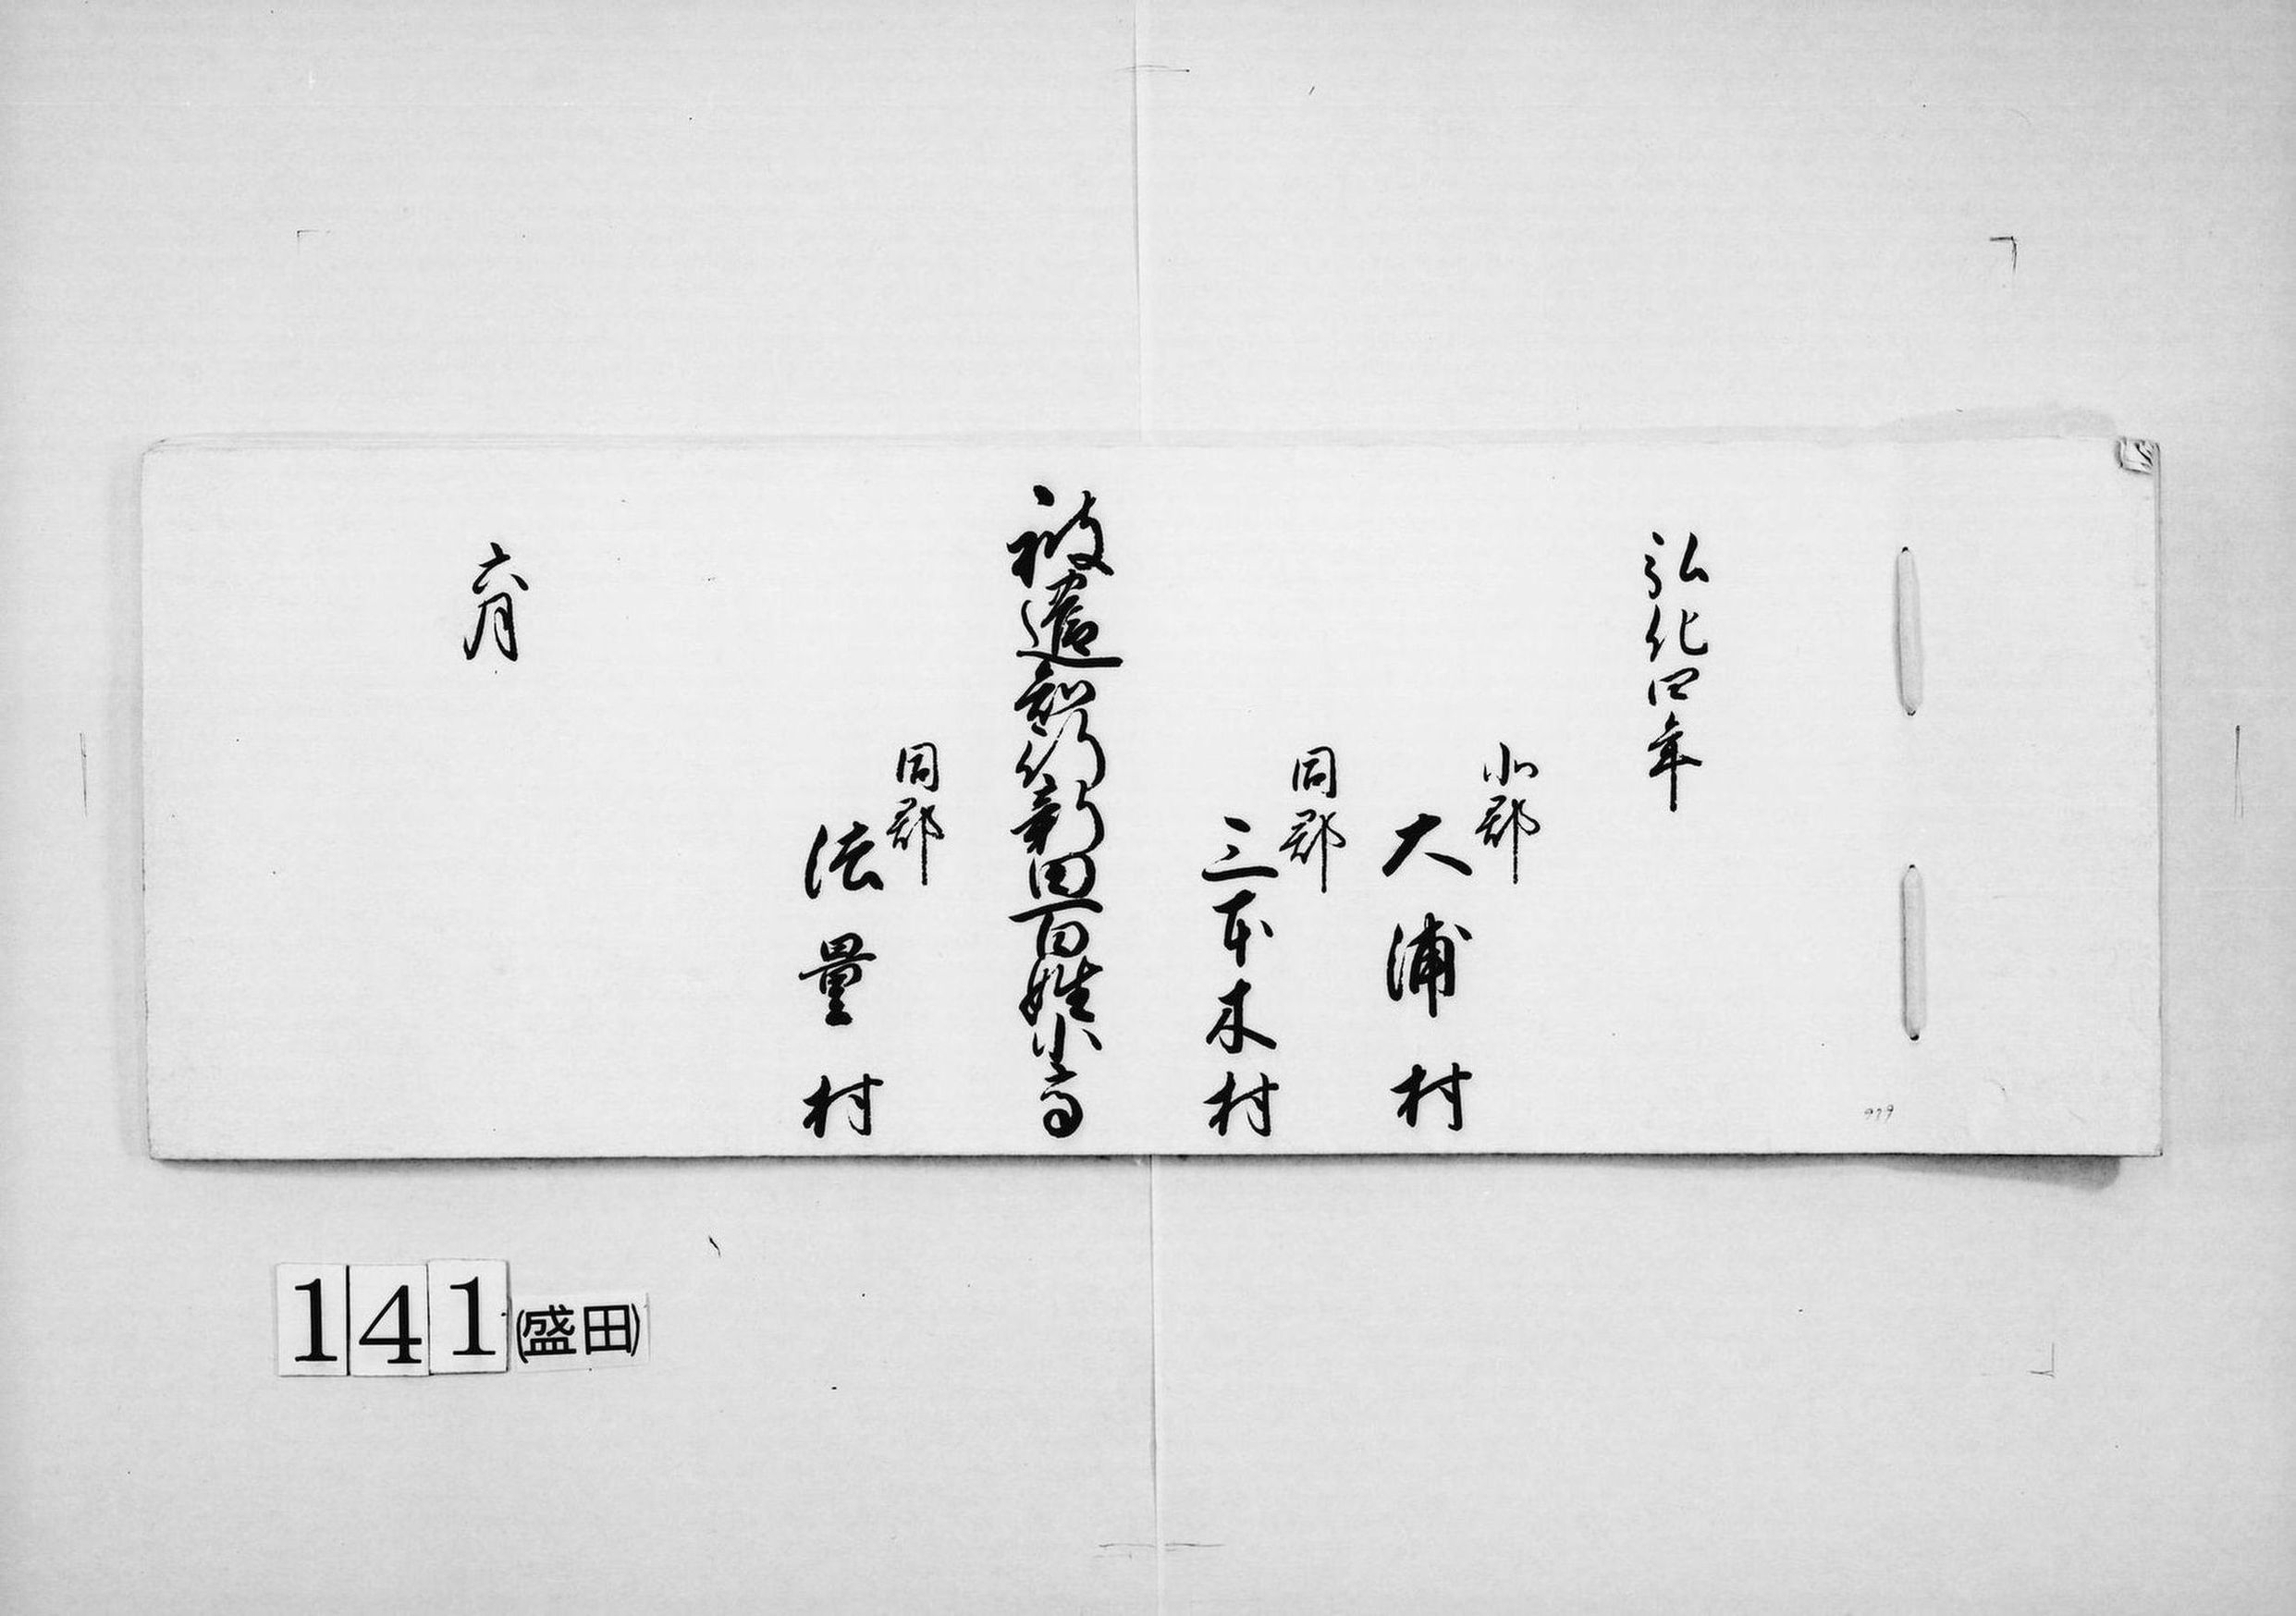 弘化四年
北郡
大浦村
同郡
三本木村
被遣知行新田百姓小高
同郡
法量村
六月
141(盛田)